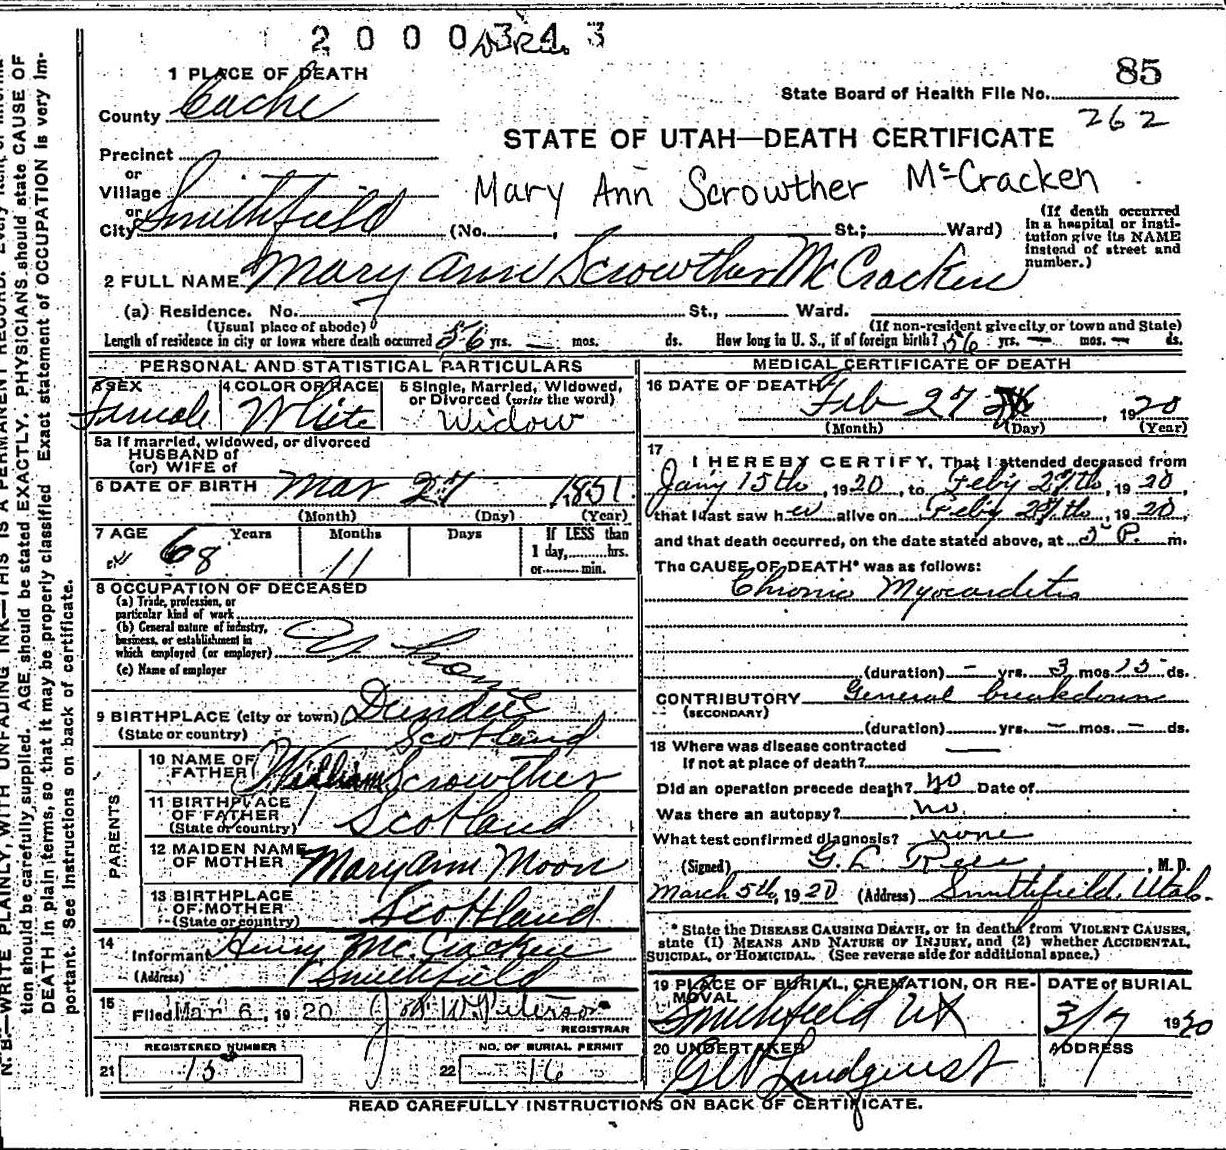 2 0 0 0 3 4 3
85
State Board of Health File No.
262
1 PLACE OF DEATH
County Cache
STATE OF UTAH—DEATH CERTIFICATE
Precinct
or
Village
Mary Ann Scrowther McCracken
or
City Smithfield (No. , St.; Ward)
(If death occurred
in a hospital or insti-
tution give its NAME
instead of street and
number.)
2 FULL NAME Mary Ann Scrowther McCracken
(a) Residence. No. St., Ward.
(Usual place of abode) (If non-resident give city or town and State)
Length of residence in city or town where death occurred 56 yrs. — mos. ds. How long in U. S., if of foreign birth? 56 yrs. — mos. — ds.
PERSONAL AND STATISTICAL PARTICULARS
3 SEX
Female
4 COLOR OR RACE
White
5 Single, Married, Widowed,
or Divorced (write the word)
Widow
5a If married, widowed, or divorced
HUSBAND of
(or) WIFE of
6 DATE OF BIRTH Mar 27 1851
(Month) (Day) (Year)
7 AGE Years Months Days If LESS than
68 11 1 day, hrs.
or min.
8 OCCUPATION OF DECEASED
(a) Trade, profession, or
particular kind of work
(b) General nature of industry,
business, or establishment in
which employed (or employer)
(c) Name of employer
9 BIRTHPLACE (city or town) Dundee
(State or country) Scotland
PARENTS
10 NAME OF
FATHER William Scrowther
11 BIRTHPLACE
OF FATHER
(State or country) Scotland
12 MAIDEN NAME
OF MOTHER Mary Ann Moon
13 BIRTHPLACE
OF MOTHER
(State or country) Scotland
14
Informant Henry McCracken
(Address) Smithfield
15
Filed Mar 6, 1920
REGISTRAR
REGISTERED NUMBER NO. OF BURIAL PERMIT
21 15 22 16
MEDICAL CERTIFICATE OF DEATH
16 DATE OF DEATH
Feb 27, 1920
(Month) (Day) (Year)
17
I HEREBY CERTIFY, That I attended deceased from
Jany 15th, 1920, to Feby 27th, 1920,
that I last saw her alive on Feby 27th, 1920,
and that death occurred, on the date stated above, at P. m.
The CAUSE OF DEATH* was as follows:
Chronic Myocarditis
(duration) — yrs. 3 mos. 15 ds.
CONTRIBUTORY General breakdown
(SECONDARY)
(duration) yrs. — mos. — ds.
18 Where was disease contracted
If not at place of death?
Did an operation precede death? no Date of
Was there an autopsy? no
What test confirmed diagnosis? none
(Signed) , M. D.
March 5th, 1920 (Address) Smithfield, Utah.
* State the DISEASE CAUSING DEATH, or in deaths from VIOLENT CAUSES,
state (1) MEANS AND NATURE OF INJURY, and (2) whether ACCIDENTAL,
SUICIDAL, or HOMICIDAL. (See reverse side for additional space.)
19 PLACE OF BURIAL, CREMATION, OR RE-
MOVAL
Smithfield Ut
DATE of BURIAL
3/7 1920
20 UNDERTAKER
G W Lindquist
ADDRESS
READ CAREFULLY INSTRUCTIONS ON BACK OF CERTIFICATE.
N. B.—WRITE PLAINLY, WITH UNFADING INK—THIS IS A PERMANENT RECORD.
tion should be carefully supplied. AGE should be stated EXACTLY. PHYSICIANS should state CAUSE OF
DEATH in plain terms, so that it may be properly classified. Exact statement of OCCUPATION is very im-
portant. See Instructions on back of certificate.